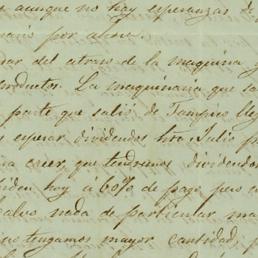 aunque no hay esperanzas de
mano por ahora.
dar del atraso de la maquina y
productos. La maquinaria que sa
parte que salió de Tampico lle
esperar dividendos hta. Julio p
a creer que tendremos dividendo
piden hoy á 60% de pago pero
salvo nada de particular ma
no tengamos mayor cantidad, p